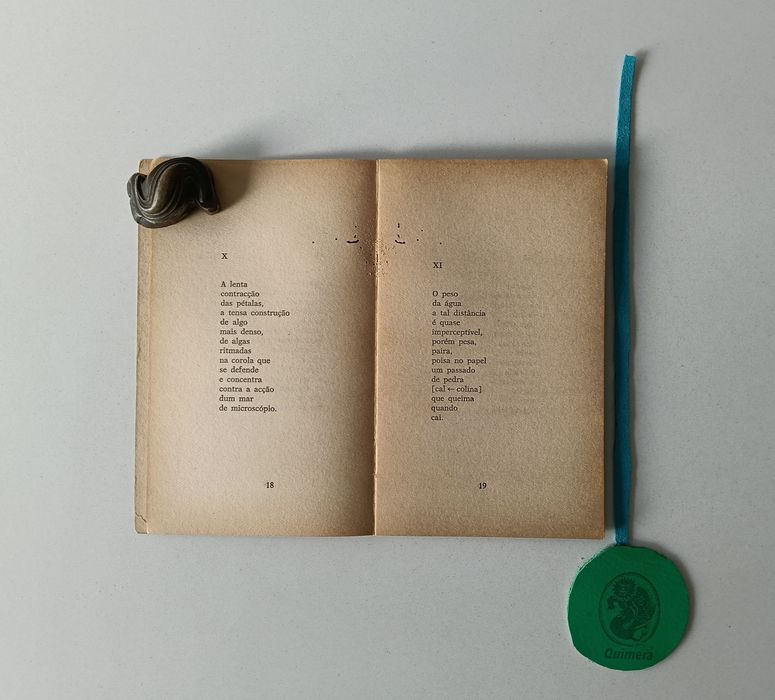 X
A lenta
contracção
das pétalas,
a tensa construção
de algo
mais denso,
de algas
ritmadas
na corola que
se defende
e concentra
contra a acção
dum mar
de microscópio.
18
XI
O peso
da água
a tal distância
é quase
imperceptível,
porém pesa,
paira,
poisa no papel
um passado
de pedra
[cal ← colina]
que queima
quando
cai.
19
Quimera